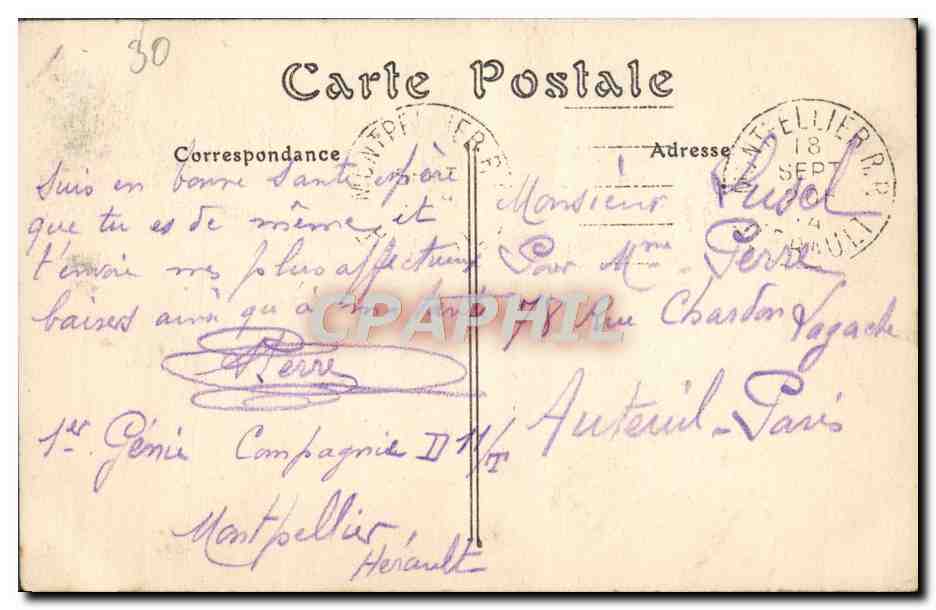 30
Carte Postale
Correspondance
suis en bonne santé espère
que tu es de même et
t'envoie mes plus affectueux
baisers ainsi qu'à
Pierre
1er Génie Compagnie D 11/T
Montpellier
Hérault
MONTPELLIER R.P.
Adresse
MONTPELLIER R.P.
18
SEPT
HERAULT
Monsieur
Pour Mme Perre
78 Rue Chardon Lagache
Auteuil-Paris
CPAPHIL